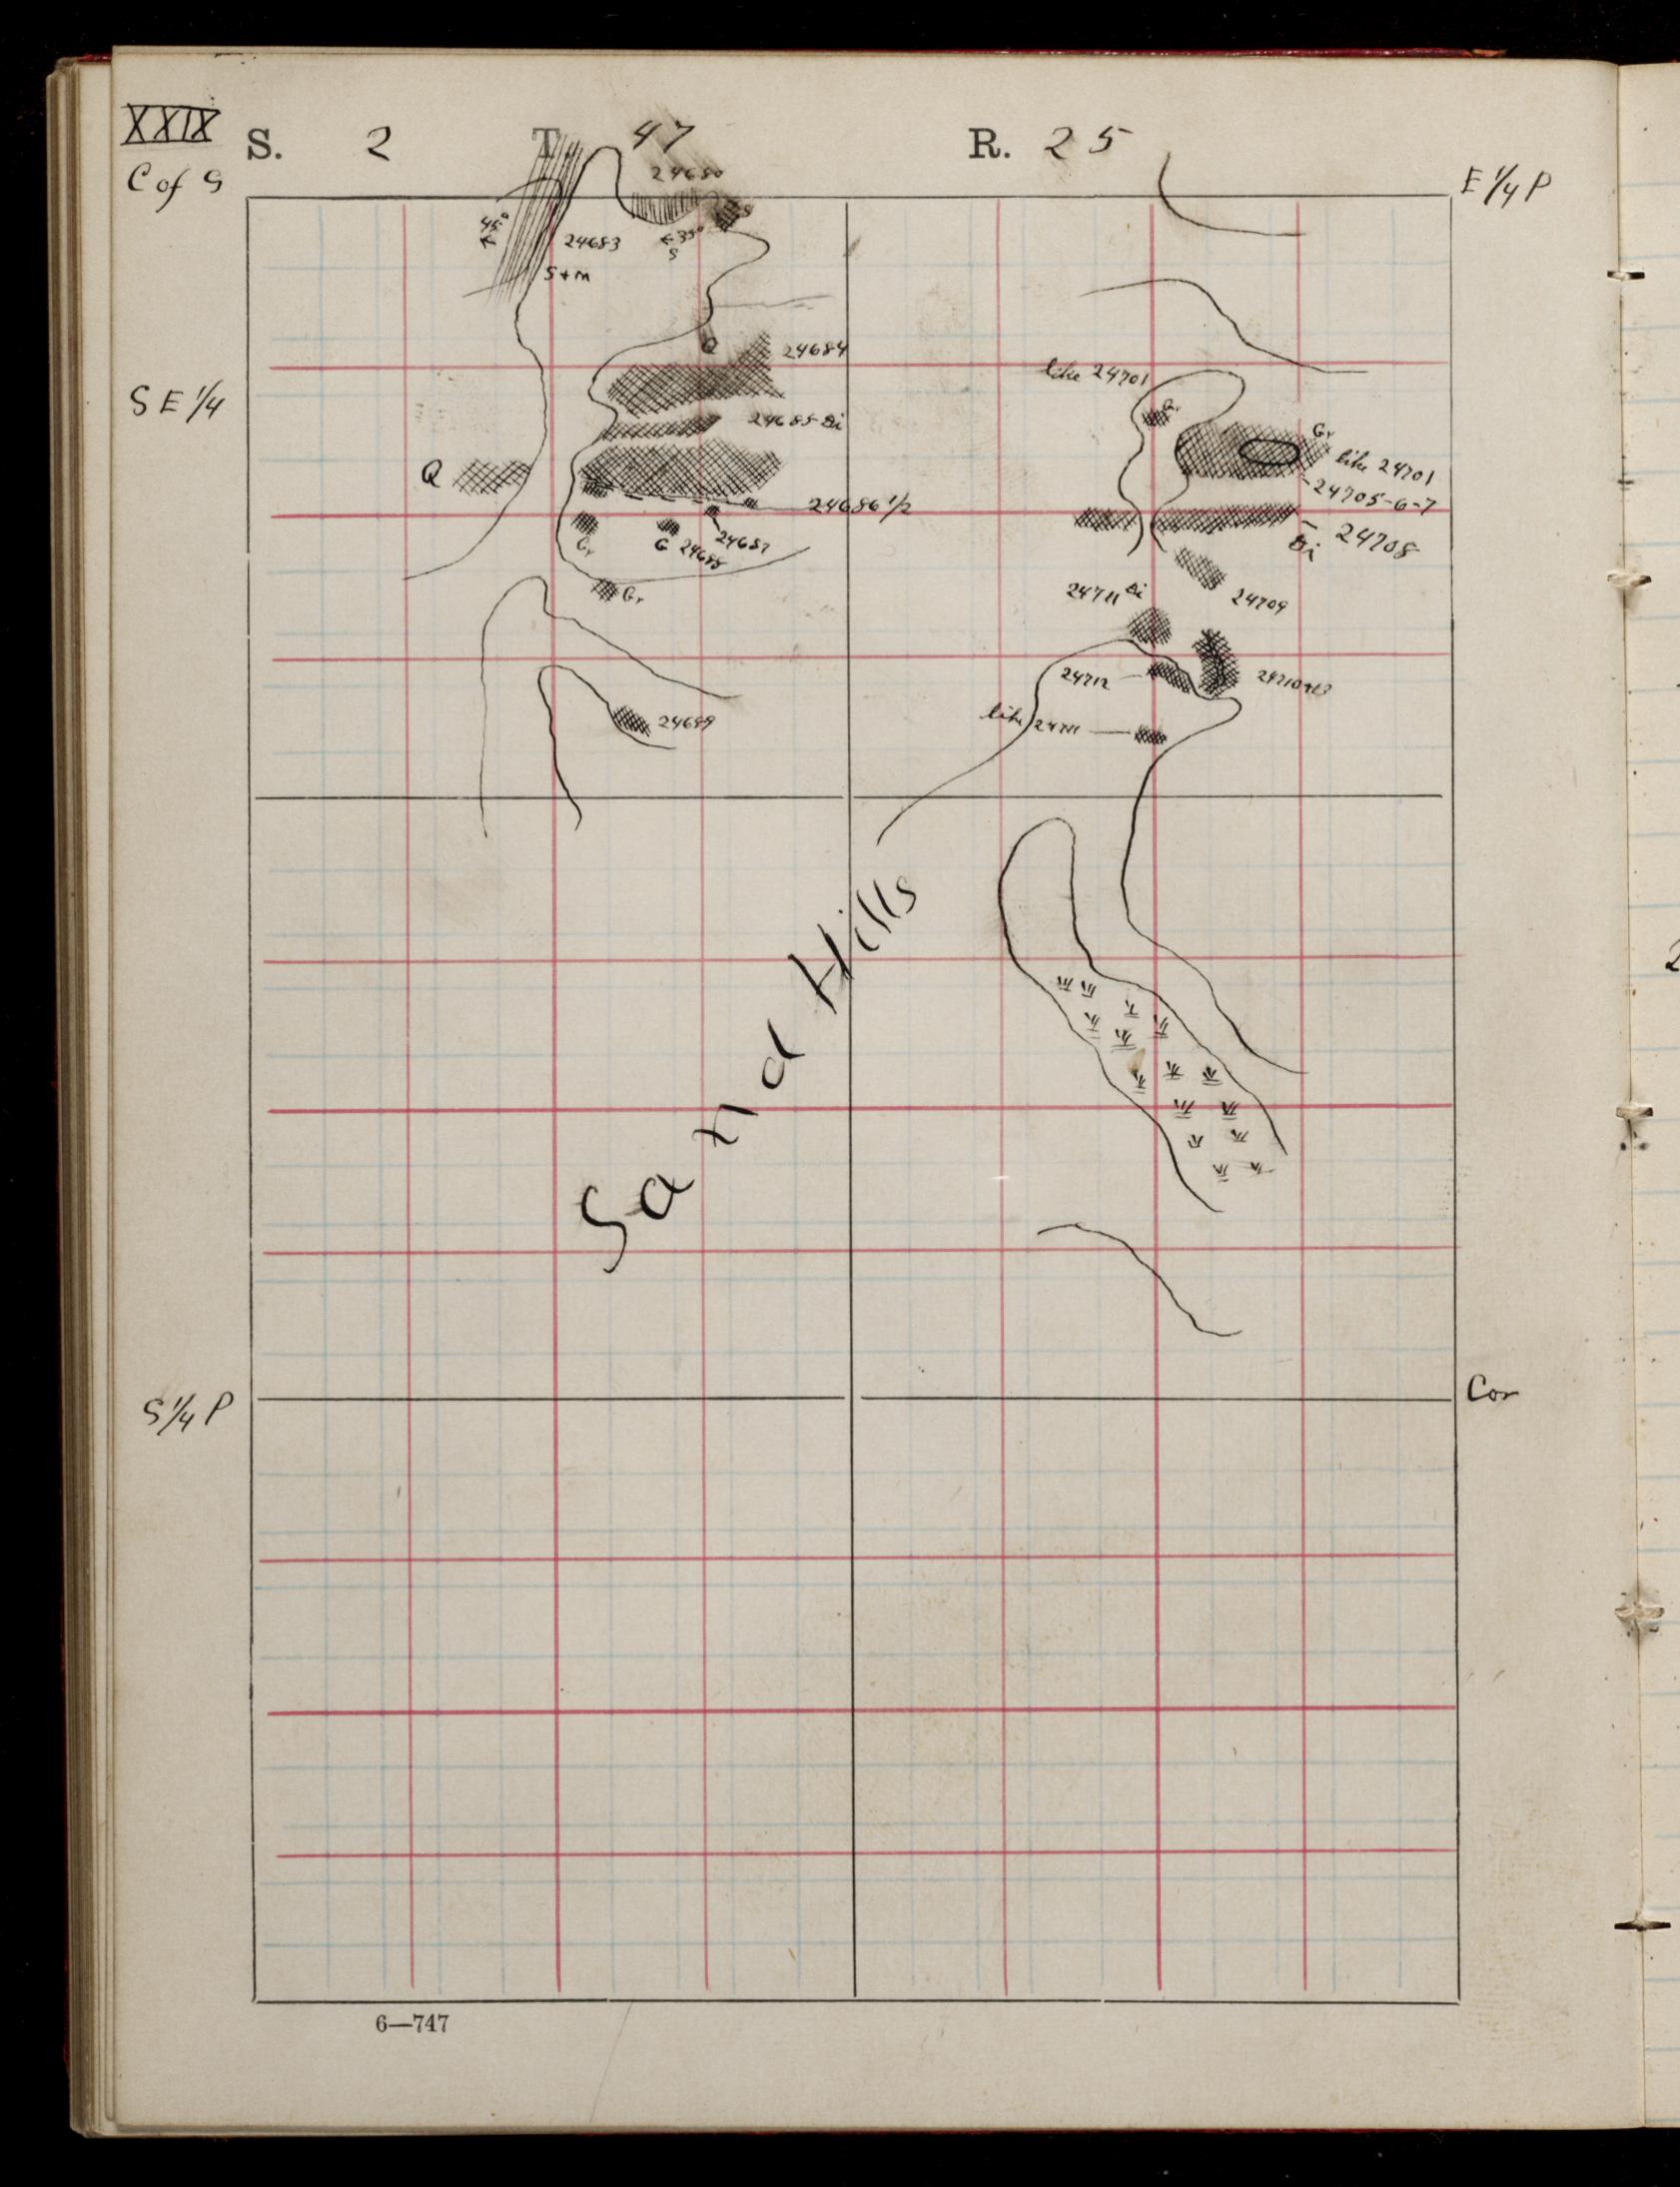 XXIX
S. 2 T. 47 R. 25
C of S
E 1/4 P
24680
45°
24683
35°
S
S+m
Q
24684
like 24701
SE 1/4
24685 Di
Gr
Gr
like 24701
Q
24705-6-7
24686 1/2
24687
Gr
G 24688
Di 24708
Gr
24711 Di
24709
24712
24689
like 24711
Sand Hills
S 1/4 P
Cor
6—747